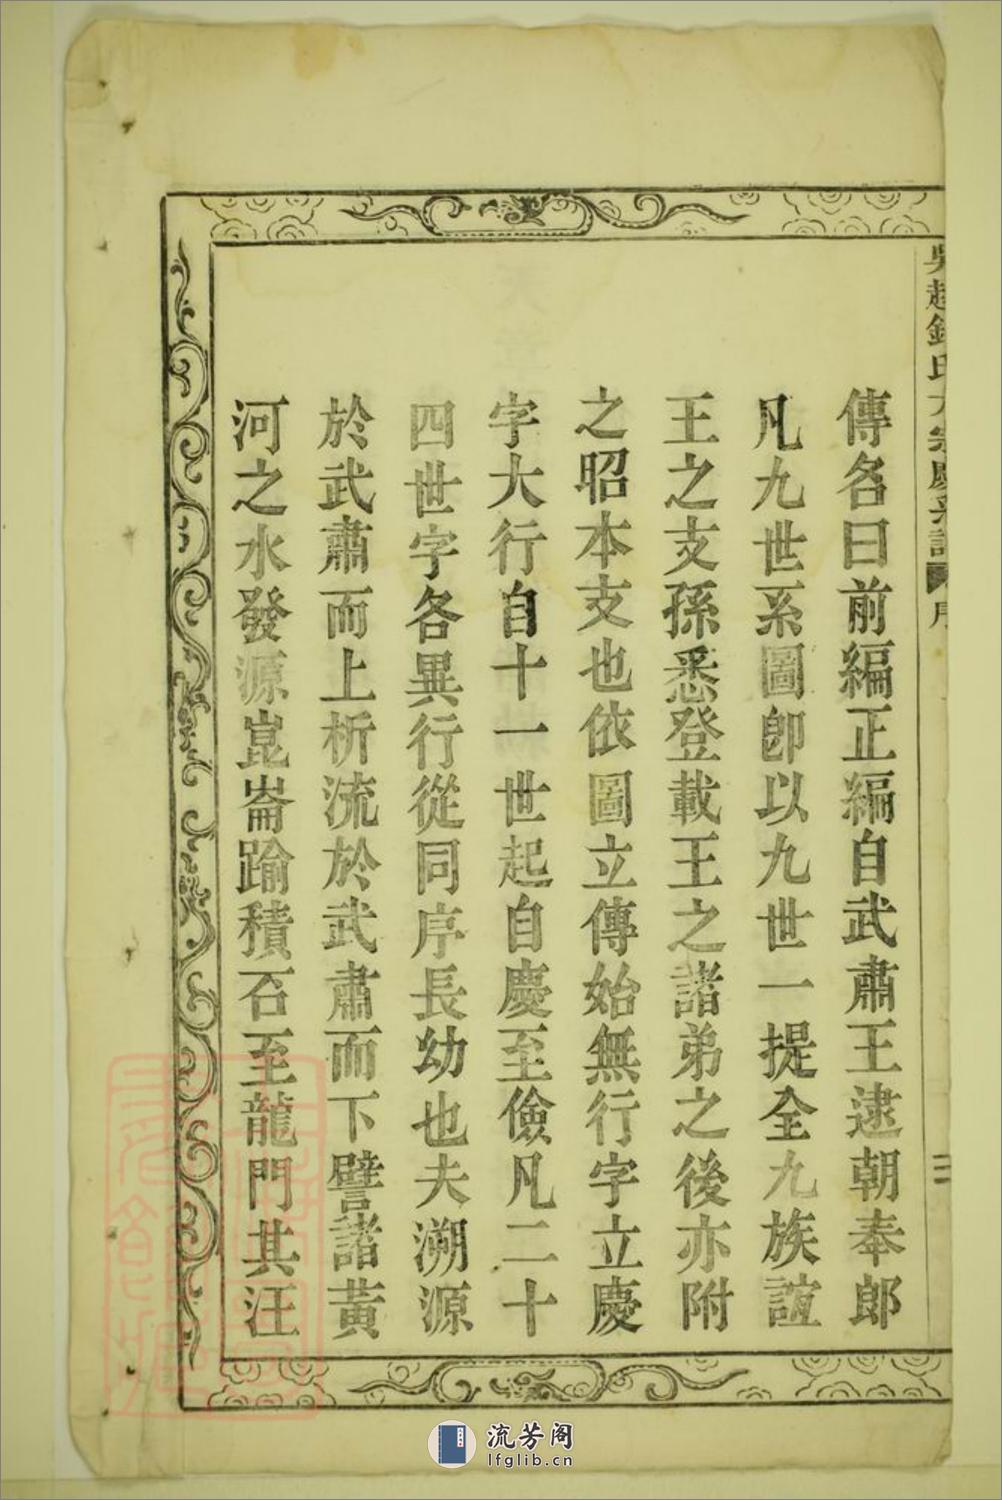 吳越錢氏大宗慶系譜 序
傳各曰前編正編自武肅王逮朝奉郎
凡九世系圖卽以九世一提全九族誼
王之支孫悉登載王之諸弟之後亦附
之昭本支也依圖立傳始無行字立慶
字大行自十一世起自慶至儉凡二十
四世字各異行從同序長幼也夫溯源
於武肅而上析流於武肅而下譬諸黃
河之水發源崑崙踰積石至龍門其汪
流芳阁
lfglib.cn